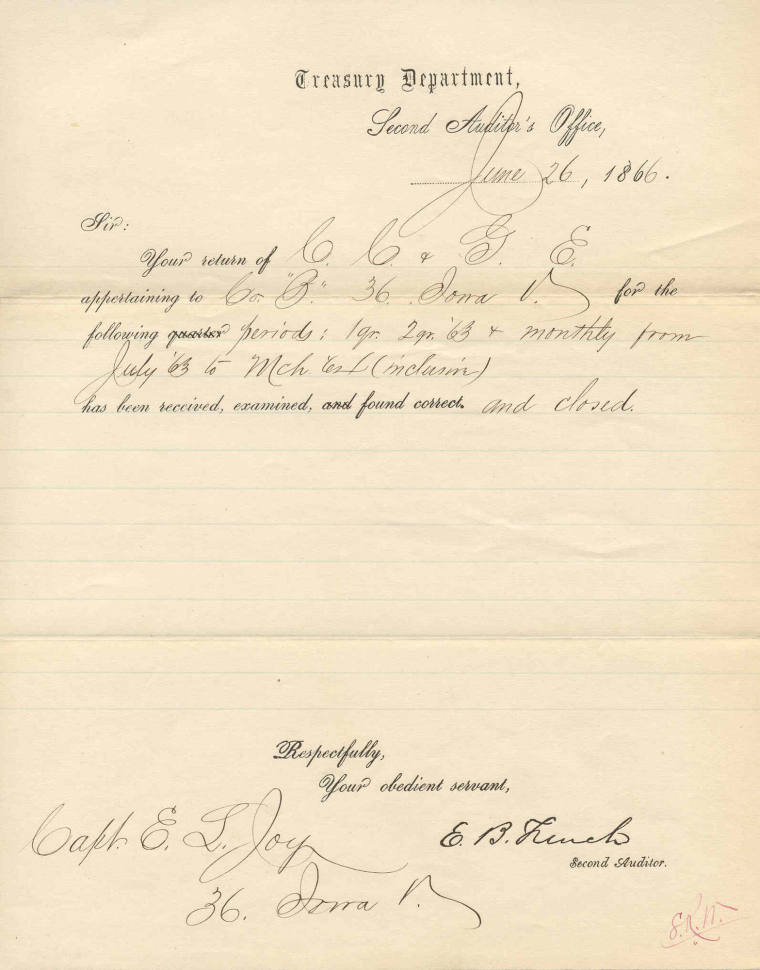 Treasury Department,
Second Auditor's Office,
June 26, 1866.
Sir:
Your return of C. C. & G. E.
appertaining to Co. "B." 36. Iowa V. for the
following quarter periods: 1qr. 2qr. '63 & monthly from
July '63 to Mch. (inclusive)
has been received, examined, and found correct. and closed.
Respectfully,
Your obedient servant,
Capt. E. L. Joy
E. B. French
Second Auditor.
36. Iowa V.